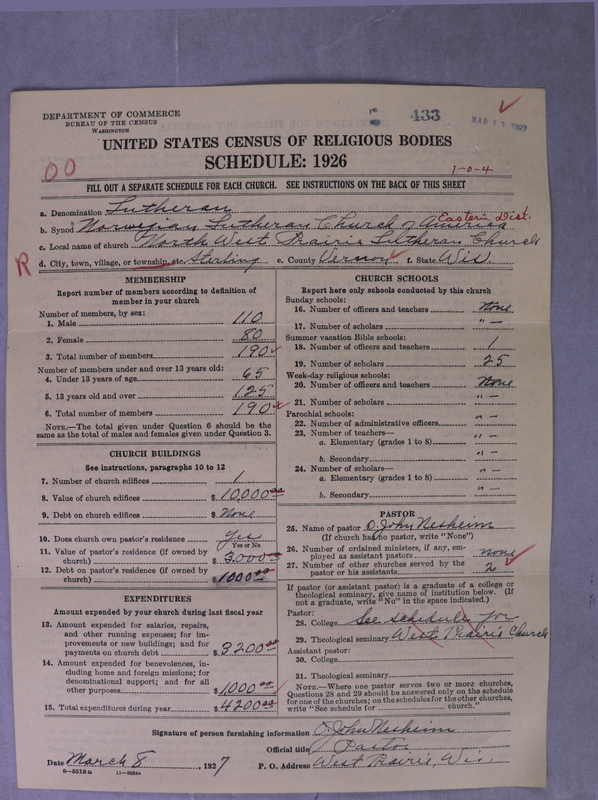 DEPARTMENT OF COMMERCE
BUREAU OF THE CENSUS
WASHINGTON
433
MAR 1927
UNITED STATES CENSUS OF RELIGIOUS BODIES
SCHEDULE: 1926
00
1-0-4
FILL OUT A SEPARATE SCHEDULE FOR EACH CHURCH. SEE INSTRUCTIONS ON THE BACK OF THIS SHEET
a. Denomination Lutheran
Eastern Dist.
b. Synod Norwegian Lutheran Church of America
c. Local name of church North West Prairie Lutheran Church
R
d. City, town, village, or township, etc. Sterling e. County Vernon f. State Wis.
MEMBERSHIP
Report number of members according to definition of member in your church
Number of members, by sex:
1. Male 110
2. Female 80
3. Total number of members 190
Number of members under and over 13 years old:
4. Under 13 years of age 65
5. 13 years old and over 125
6. Total number of members 190
NOTE.—The total given under Question 6 should be the same as the total of males and females given under Question 3.
CHURCH BUILDINGS
See instructions, paragraphs 10 to 12
7. Number of church edifices 1
8. Value of church edifices $ 10,000.00
9. Debt on church edifices $ None
10. Does church own pastor's residence? Yes
Yes or No
11. Value of pastor's residence (if owned by church) $ 3000.00
12. Debt on pastor's residence (if owned by church) $ 1000.00
EXPENDITURES
Amount expended by your church during last fiscal year
13. Amount expended for salaries, repairs, and other running expenses; for improvements or new buildings; and for payments on church debt $ 3200.00
14. Amount expended for benevolences, including home and foreign missions; for denominational support; and for all other purposes $ 1000.00
15. Total expenditures during year $ 4200.00
CHURCH SCHOOLS
Report here only schools conducted by this church
Sunday schools:
16. Number of officers and teachers None
17. Number of scholars " —
Summer vacation Bible schools:
18. Number of officers and teachers 1
19. Number of scholars 25
Week-day religious schools:
20. Number of officers and teachers None
21. Number of scholars " —
Parochial schools:
22. Number of administrative officers " —
23. Number of teachers—
a. Elementary (grades 1 to 8) " —
b. Secondary " —
24. Number of scholars—
a. Elementary (grades 1 to 8) " —
b. Secondary " —
PASTOR
25. Name of pastor O. John Nesheim
(If church has no pastor, write "None")
26. Number of ordained ministers, if any, employed as assistant pastors None
27. Number of other churches served by the pastor or his assistants 2
If pastor (or assistant pastor) is a graduate of a college or theological seminary, give name of institution below. (If not a graduate, write "No" in the space indicated.)
Pastor:
28. College See schedule for
29. Theological seminary West Prairie Church
Assistant pastor:
30. College
31. Theological seminary
NOTE.—Where one pastor serves two or more churches, Questions 28 and 29 should be answered only on the schedule for one of the churches; on the schedules for the other churches, write "See schedule for ______ church."
Signature of person furnishing information O. John Nesheim
Official title Pastor
Date March 8, 1927 P. O. Address West Prairie, Wis.
8-3518a